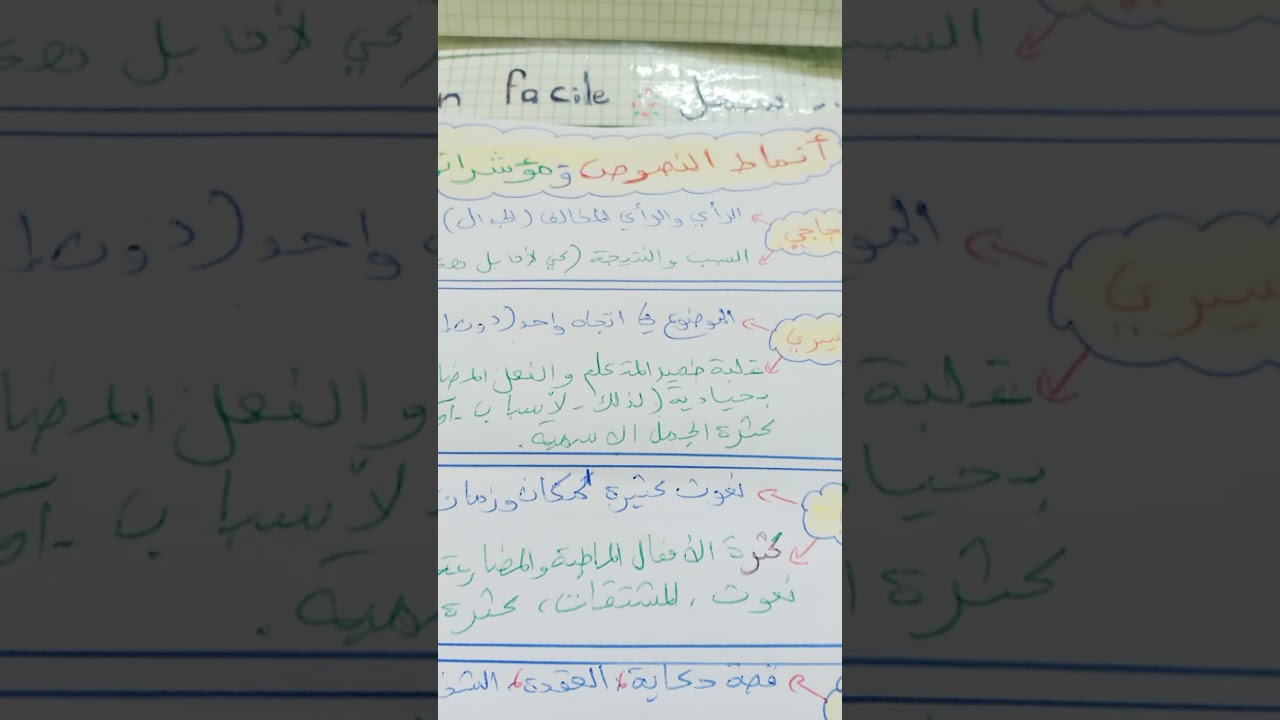 n facile سهل
أنماط النصوص ومؤشرات
جاجي الرأي والرأي المخالف (الجدال)
السبب والنتيجة (كي لأن بل
سيري الموضوع في اتجاه واحد (دون إ
غلبة ضمير المتكلم والفعل المضا
بحيادية (لذلك - لأسباب -
كثرة الجمل الاسمية.
نعوت كثيرة لمكان وزمان
كثرة الأفعال الماضية والمضارعة
نعوت، المشتقات، كثرة
قصة حكاية، العقدة،